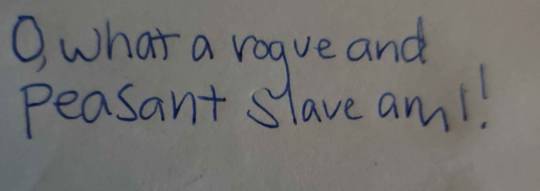 O, what a rogue and
peasant slave am I!